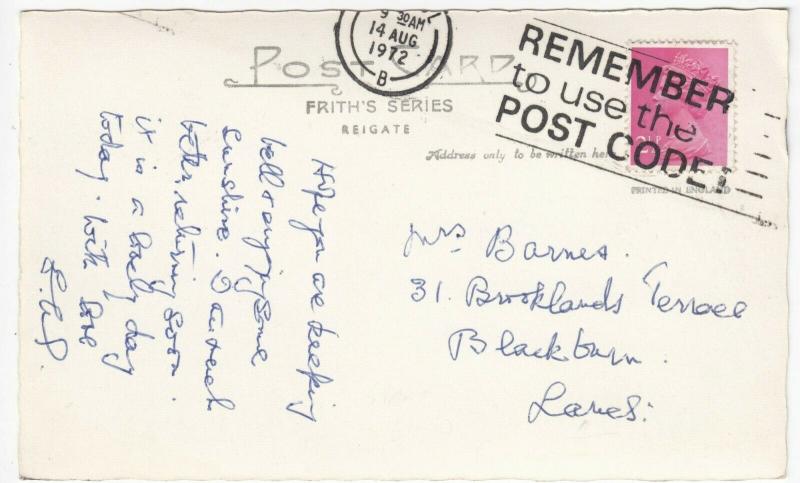 9 30AM
14 AUG
1972
B
POST CARD
FRITH'S SERIES
REIGATE
Address only to be written here
REMEMBER
to use the
POST CODE
PRINTED IN ENGLAND
Mrs Barnes.
31. Brooklands Terrace
Blackburn.
Lancs.
Hope you are keeping
well & enjoying some
sunshine. I am much
better, returning soon.
it is a lovely day
today. With love